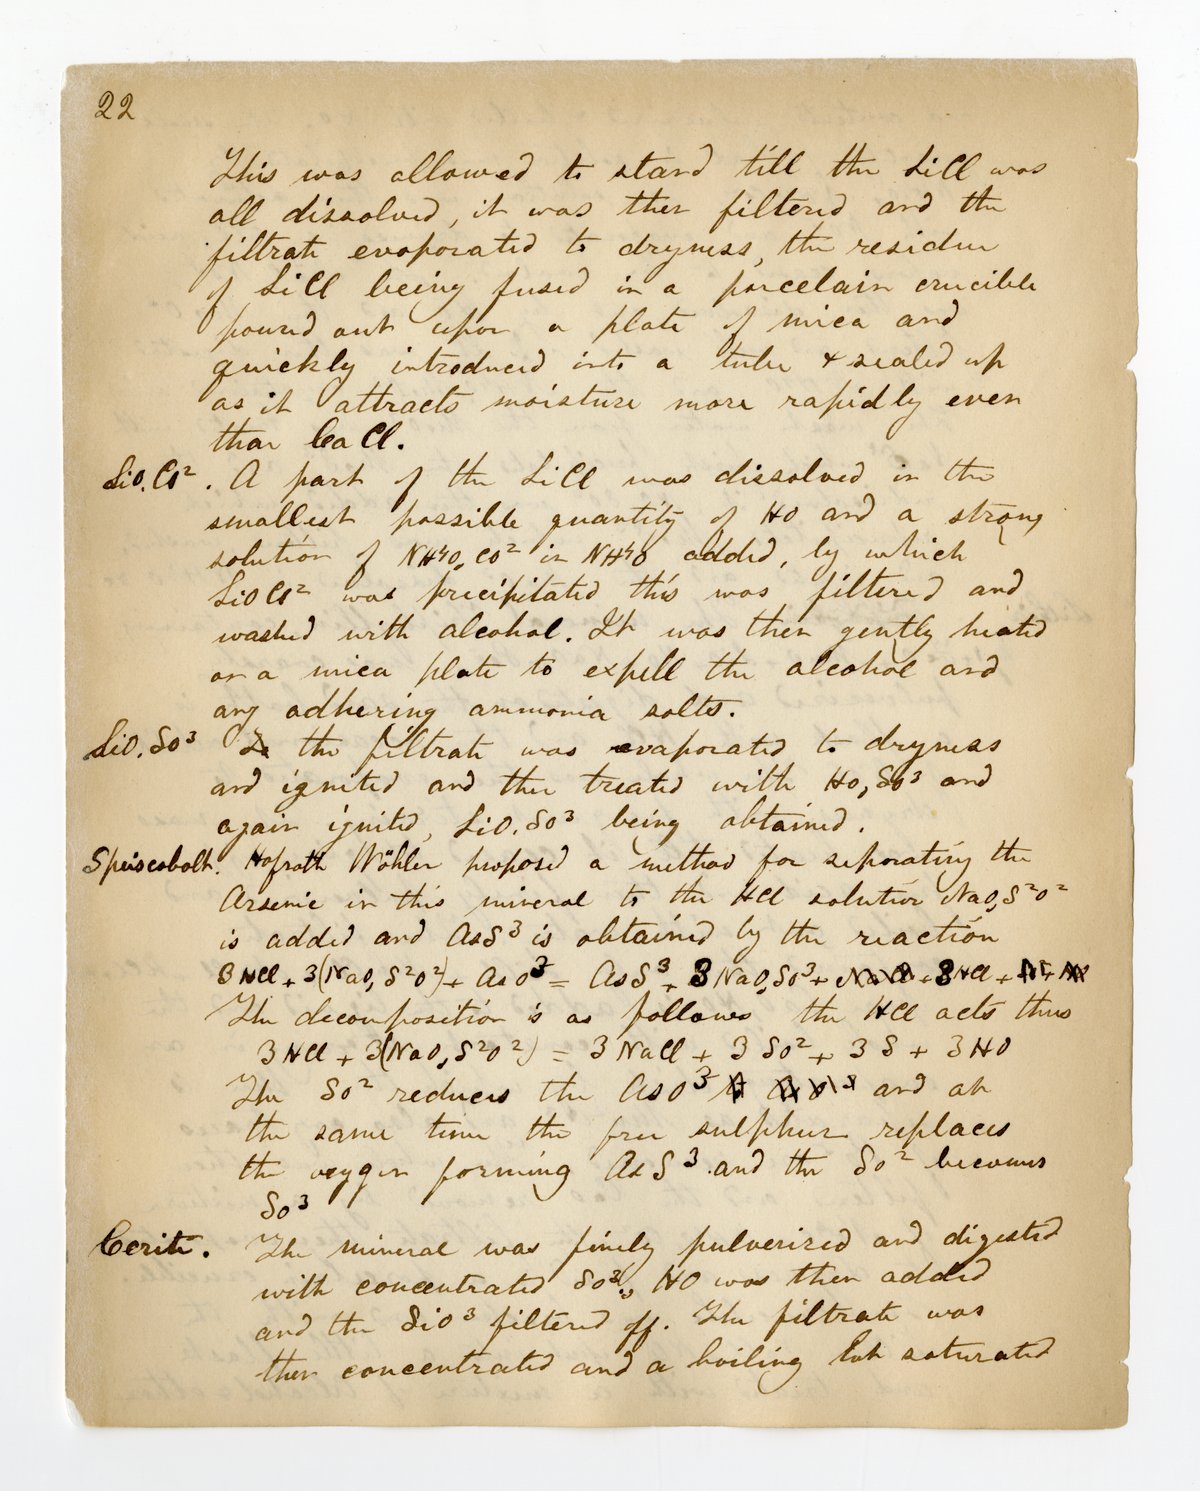 22
This was allowed to stand till the LiCl was
all dissolved, it was then filtered and the
filtrate evaporated to dryness, the residue
of LiCl being fused in a porcelain crucible
poured out upon a plate of mica and
quickly introduced into a tube + sealed up
as it attracts moisture more rapidly even
than CaCl.
LiO.CO² . A part of the LiCl was dissolved in the
smallest possible quantity of HO and a strong
solution of NH⁴O,CO² in NH⁴O added, by which
LiOCO² was precipitated this was filtered and
washed with alcohol. It was then gently heated
on a mica plate to expell the alcohol and
any adhering ammonia salts.
LiO.SO³ the filtrate was evaporated to dryness
and ignited and then treated with HO,SO³ and
again ignited, LiO.SO³ being obtained.
Speiscobolt. Hofrath Wöhler proposed a method for separating the
Arsenic in this mineral to the HCl solution NaO,S²O²
is added and AsS³ is obtained by the reaction
3HCl + 3(NaO,S²O²) + AsO³ = AsS³ + 3NaO,SO³ + NaCl + 3HCl +
The decomposition is as follows the HCl acts thus
3HCl + 3(NaO,S²O²) = 3NaCl + 3SO² + 3S + 3HO
The SO² reduces the AsO³ and at
the same time the free sulphur replaces
the oxygen forming AsS³ and the SO² becomes
SO³
Cerite. The mineral was finely pulverized and digested
with concentrated SO³, HO was then added
and the SiO³ filtered off. The filtrate was
then concentrated and a boiling hot saturated